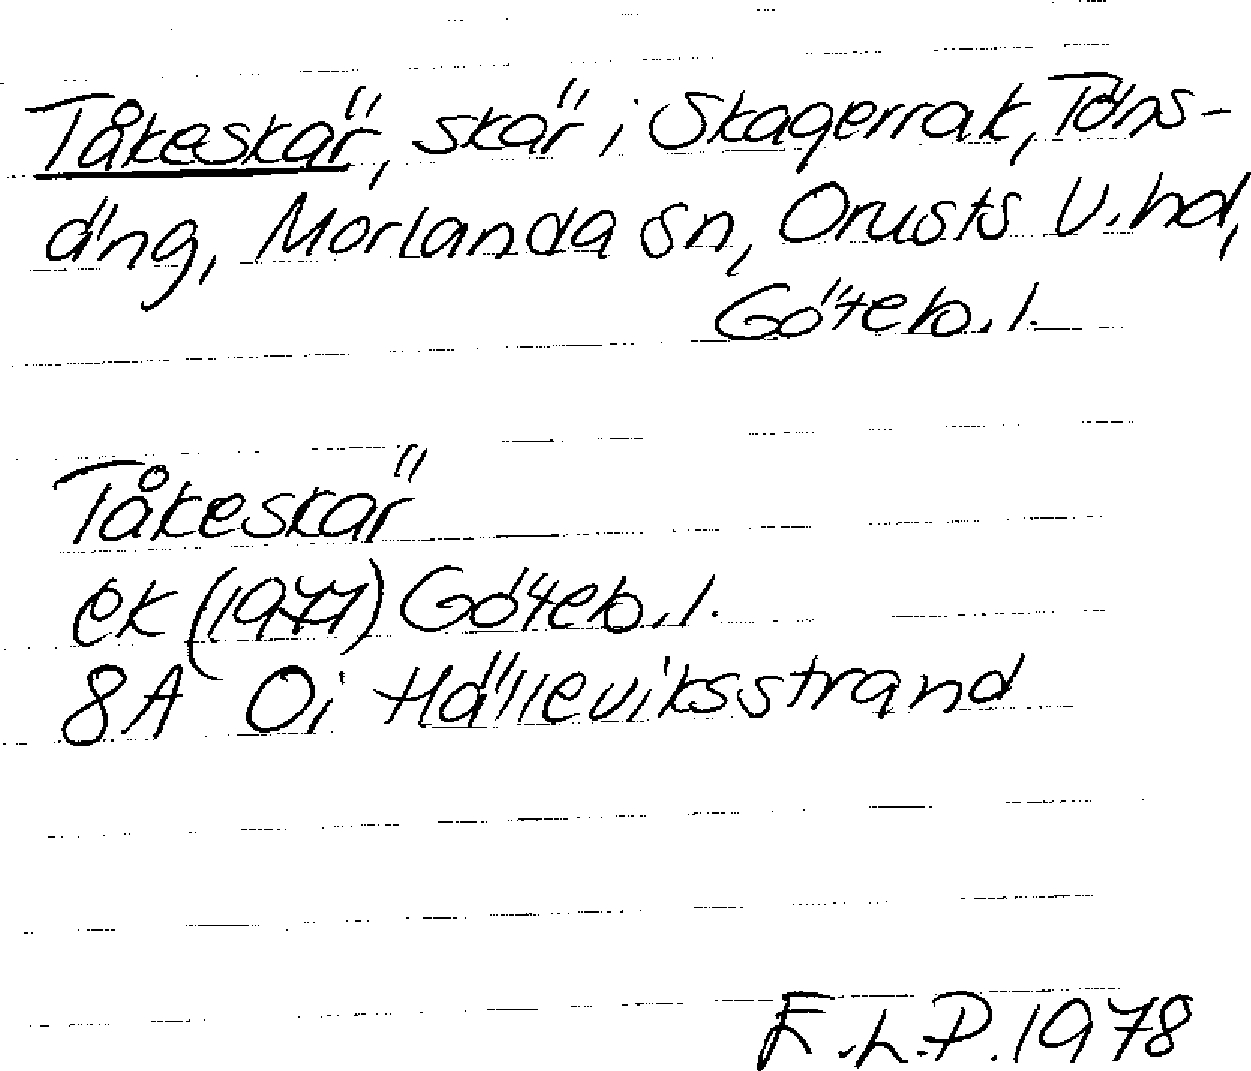 Tåkeskär, skär i Skagerrak, Töns-
äng, Morlanda sn, Orusts V. hd,
Göteb. l.
Tåkeskär
ek (1977) Göteb. l.
8A 0i Hälleviksstrand
F.L.P. 1978